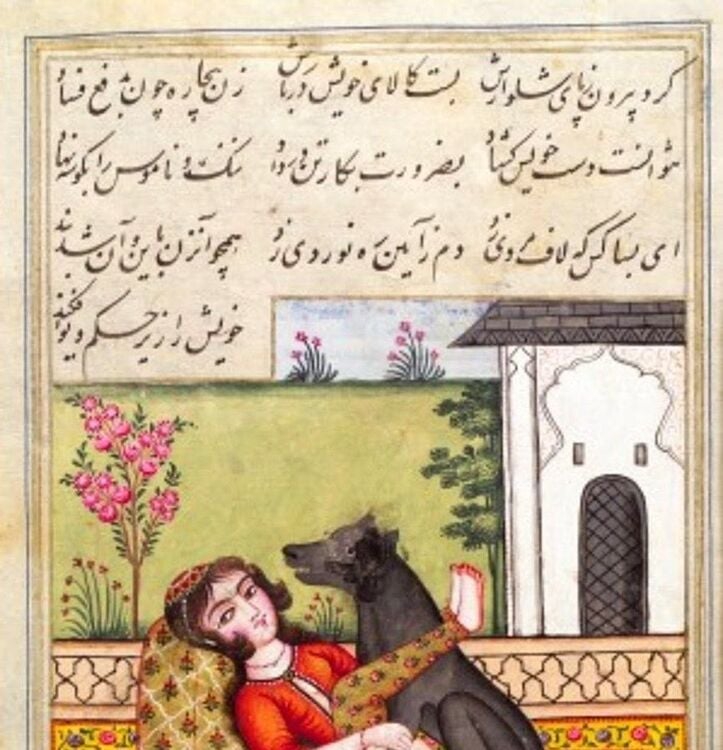 کرد بیرون ز پای شلوارش بست کالای خویش در بارش زن بیچاره چون بدفع فساد
نتوانست دست خویش کشاد بضرورت بکار تن در داد ننک و ناموس را بکوشه نهاد
ای بسا کس که لاف مردی زد دم ز آیین ره نوردی زد همچو آنزن باین و آن شد بند
خویش را زیر حکم دیو فکند